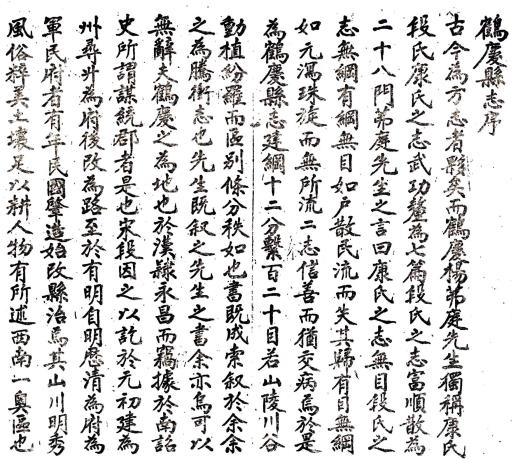 鶴慶縣志序
古今為方志者夥矣而鶴慶楊茀庭先生獨稱康氏
段氏康氏之志武功釐為七篇段氏之志富順散為
二十八門茀庭先生之言曰康氏之志無目段氏之
志無綱有綱無目如戶散民流而失其歸有目無綱
如元瀉珠旋而無所流二志信善而猶交病焉於是
為鶴慶縣志建綱十二分繫百二十目若山陵川谷
動植紛羅而區別條分秩如也書既成索叙於余余
之為騰衝志也先生既叙之先生之書余亦烏可以
無辭夫鶴慶之為地也於漢隸永昌而竊據於南詔
史所謂謀統郡者是也宋段因之以訖於元初建為
州尋升為府後改為路至於有明自明歷清為府為
軍民府者有年民國肇造始改縣治焉其山川明秀
風俗粹美土壤足以耕人物有所述西南一奧區也